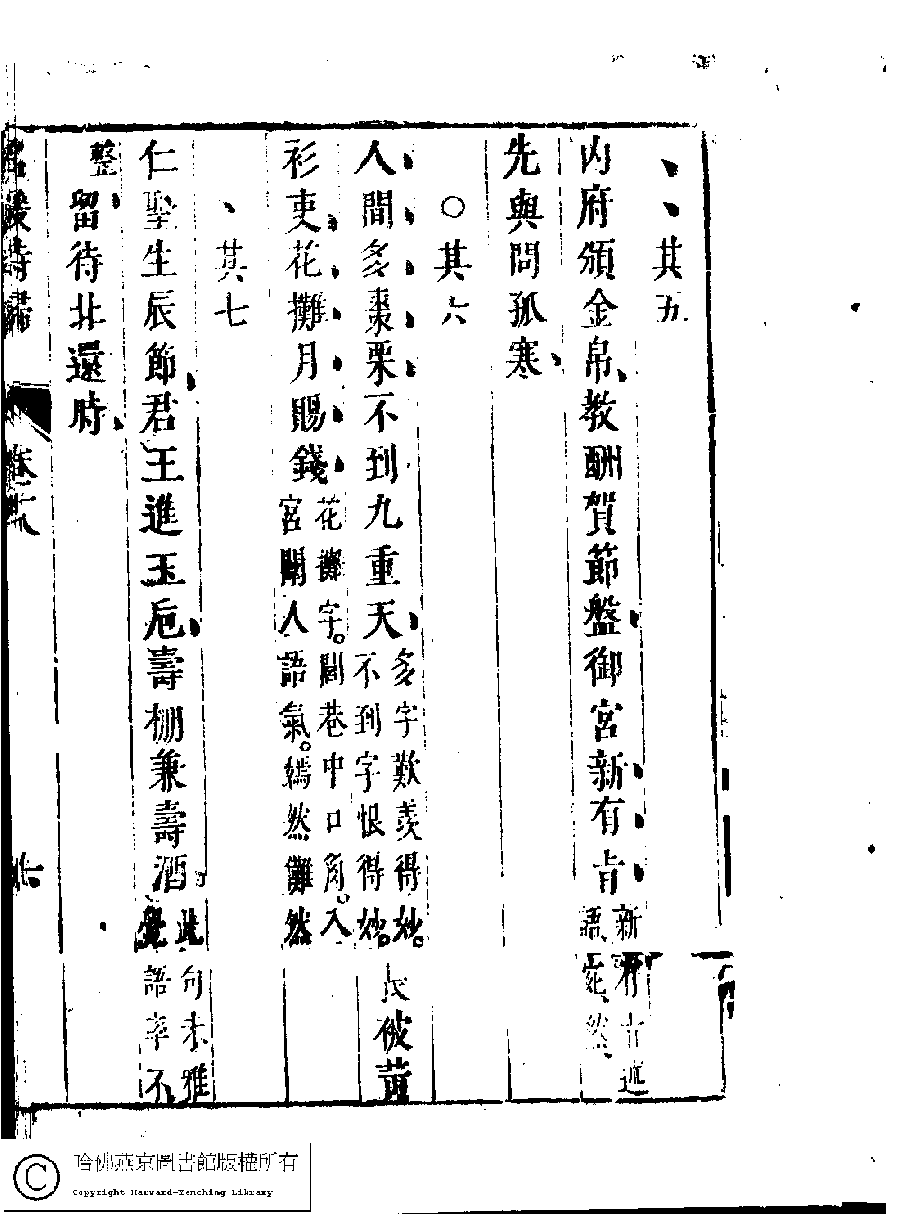 其五
内府頒金帛教酬賀節盤御宮新有旨新有旨近語宛然
先與問孤寒
其六
人間多棗栗不到九重天多字歎羨得妙不到字恨得妙長被黃
衫吏花攤月賜錢花攤字閭巷中口角入宮闈人語氣嫣然儼然
其七
仁聖生辰節君王進玉卮壽棚兼壽酒此句未雅覺語率不
整留待北還時
名媛詩歸
哈佛燕京圖書館版權所有
Copyright Harvard-Yenching Library